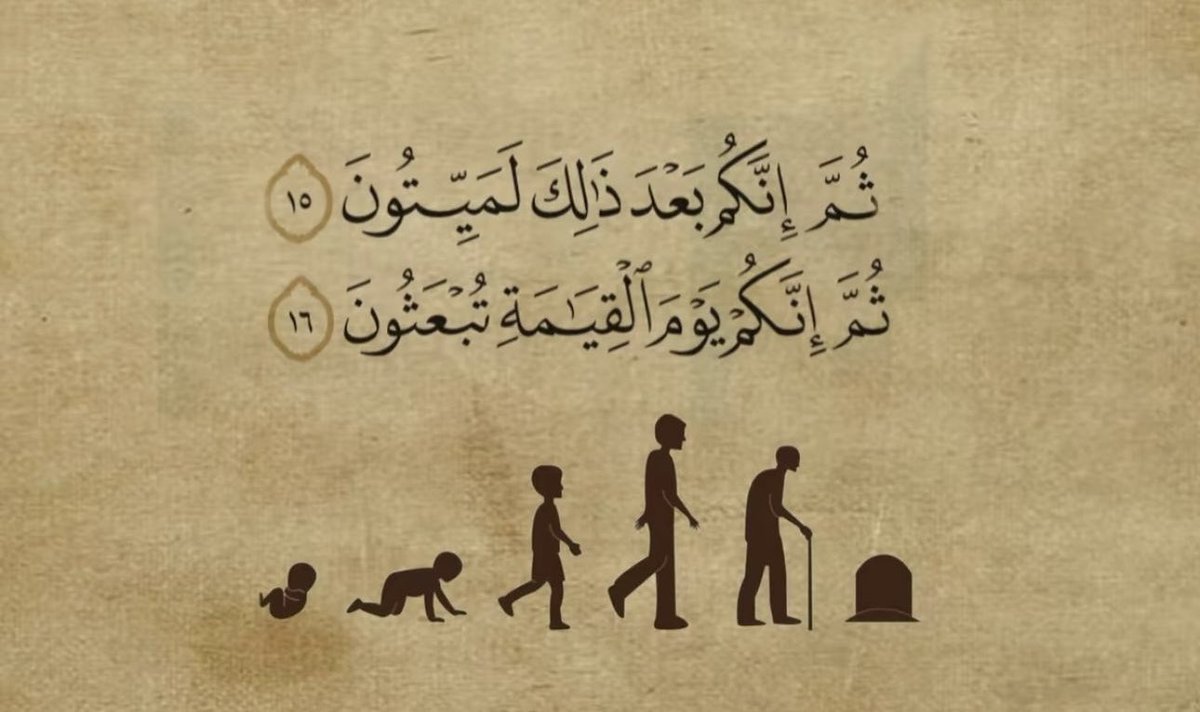 ثُمَّ إِنَّكُم بَعْدَ ذَٰلِكَ لَمَيِّتُونَ ١٥
ثُمَّ إِنَّكُمْ يَوْمَ ٱلْقِيَٰمَةِ تُبْعَثُونَ ١٦